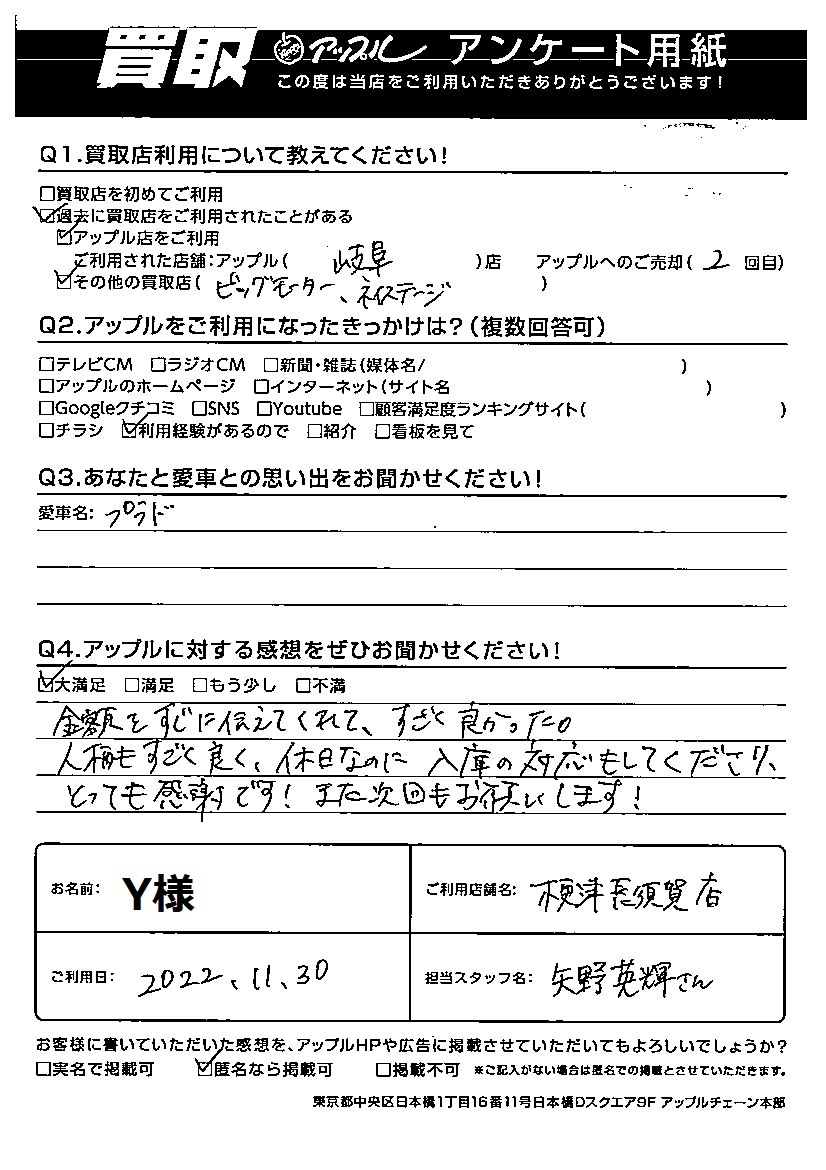 買取 アップル アンケート用紙
この度は当店をご利用いただきありがとうございます！
Q1.買取店利用について教えてください！
□買取店を初めてご利用
☑過去に買取店をご利用されたことがある
☑アップル店をご利用
ご利用された店舗：アップル( 岐阜 )店 アップルへのご売却( 2 回目)
☑その他の買取店( ビッグモーター、ネクステージ )
Q2.アップルをご利用になったきっかけは？(複数回答可)
□テレビCM □ラジオCM □新聞・雑誌(媒体名/ )
□アップルのホームページ □インターネット(サイト名 )
□Googleクチコミ □SNS □Youtube □顧客満足度ランキングサイト( )
□チラシ ☑利用経験があるので □紹介 □看板を見て
Q3.あなたと愛車との思い出をお聞かせください！
愛車名： プラド
Q4.アップルに対する感想をぜひお聞かせください！
☑大満足 □満足 □もう少し □不満
金額をすぐに伝えてくれて、すごく良かった。
人柄もすごく良く、休日なのに入庫の対応もしてくださり、
とっても感謝です！また次回もお願いします！
お名前： Y様 ご利用店舗名： 木更津長須賀店
ご利用日： 2022、11、30 担当スタッフ名： 矢野英輝さん
お客様に書いていただいた感想を、アップルHPや広告に掲載させていただいてもよろしいでしょうか？
□実名で掲載可 ☑匿名なら掲載可 □掲載不可 ※ご記入がない場合は匿名での掲載とさせていただきます。
東京都中央区日本橋1丁目16番11号日本橋Dスクエア9F アップルチェーン本部